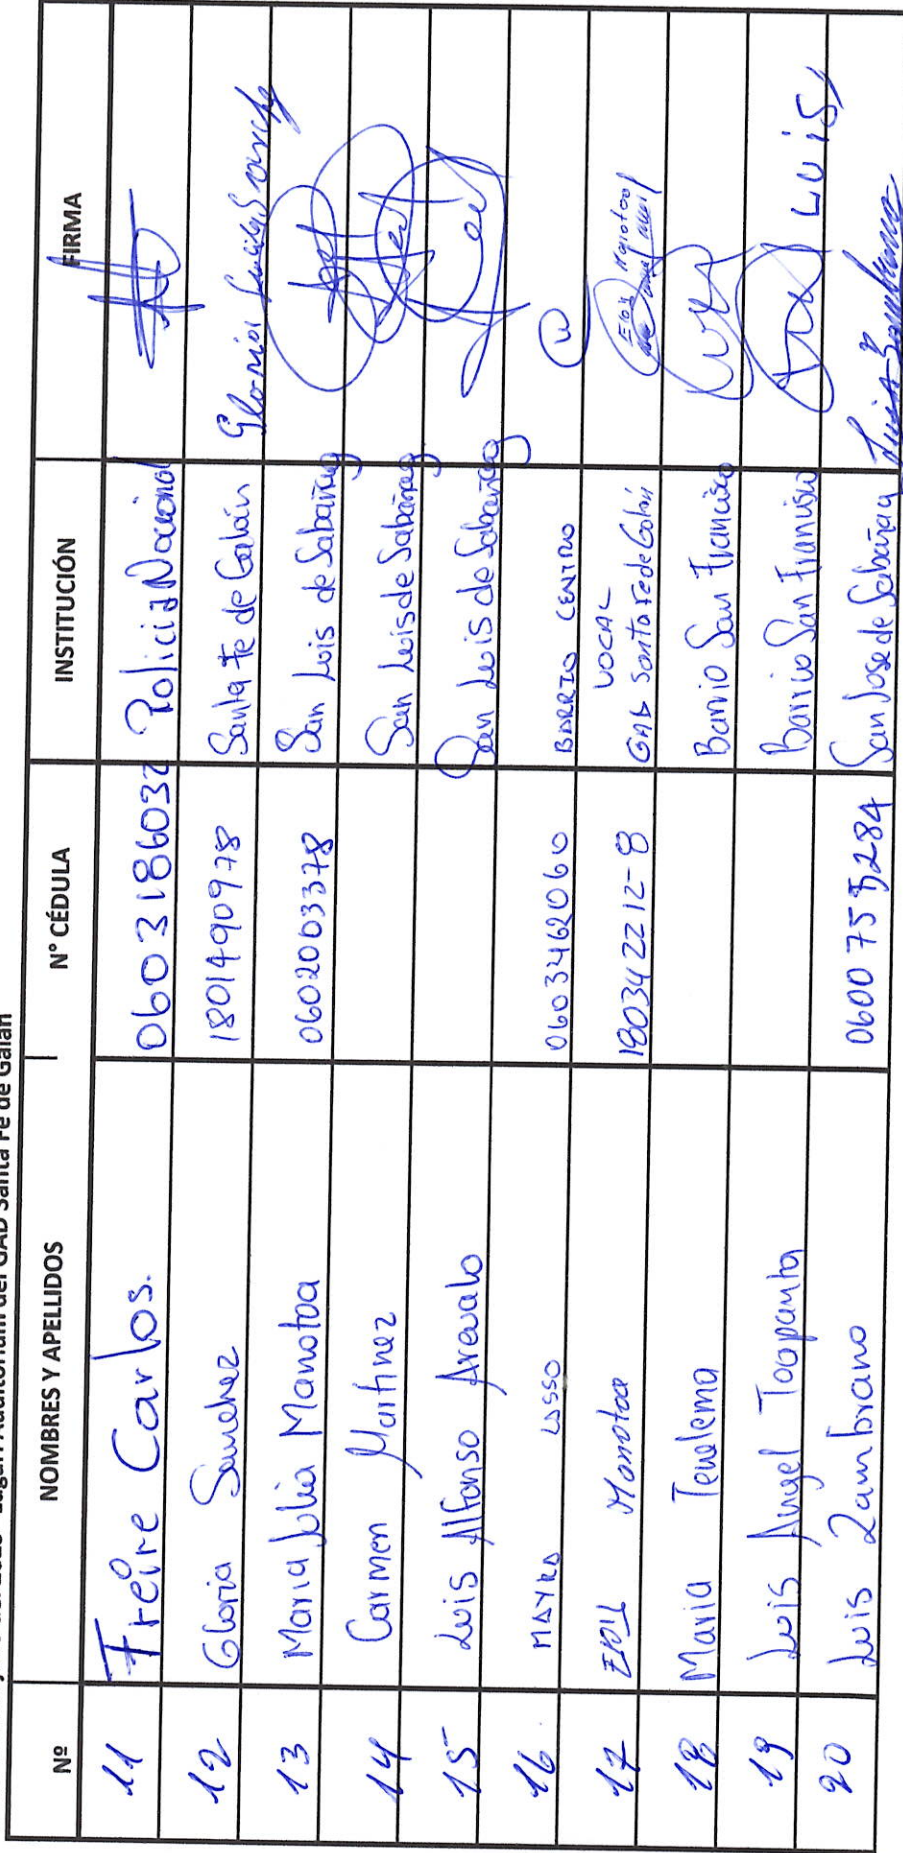 Lugar: Auditorium del GAD Santa Fe de Galán
Nº NOMBRES Y APELLIDOS N° CÉDULA INSTITUCIÓN FIRMA
11 Freire Carlos. 0603186032 Policia Nacional
12 Gloria Sanchez 1801490978 Santa Fe de Galán Gloria
13 Maria Julia Manotoa 0602003378 San Luis de Sabañag
14 Carmen Martinez San Luis de Sabañag
15 Luis Alfonso Arevalo San Luis de Sabañag
16 MAYRA LASSO 0603462060 BARRIO CENTRO
17 Eloy Manotoa 180342212-8 VOCAL
GAD Santa Fe de Galán Eloy Manotoa
18 Maria Tenelema Barrio San Francisco
19 Luis Angel Toapanta Barrio San Francisco LUIS
20 Luis Zambrano 0600755284 San Jose de Sabañag Luis Zambrano